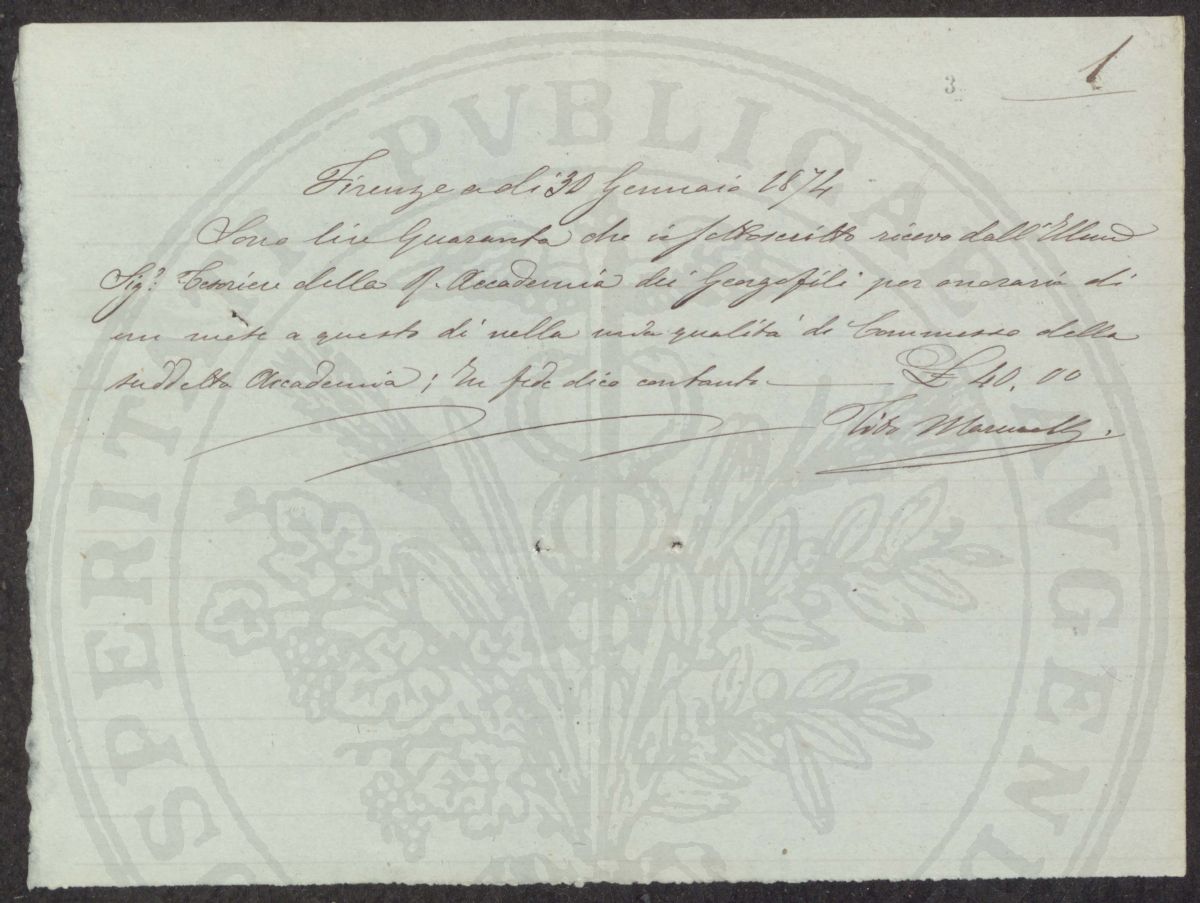 3
1
Firenze a dì 30 Gennaio 1874
Sono lire Quaranta che io sottoscritto ricevo dall'Illmo
Sig.e Tesoriere della R. Accademia dei Georgofili per onorario di
un mese a questo dì nella mia qualità di Commesso della
suddetta Accademia; In fede dico contanto £ 40,00
PVBLICAE AVGEN
SPERITATI